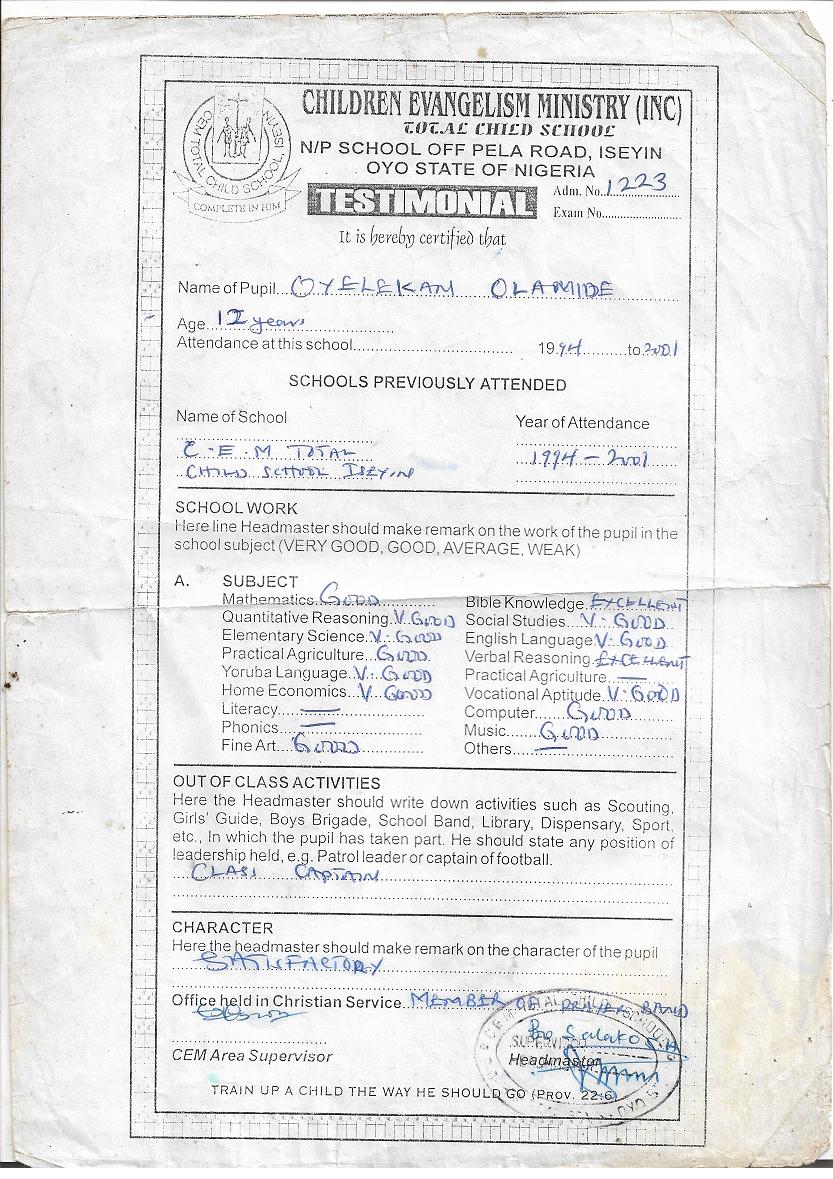 CEM TOTAL CHILD SCHOOL, ISEYIN
COMPLETE IN HIM
CHILDREN EVANGELISM MINISTRY (INC)
TOTAL CHILD SCHOOL
N/P SCHOOL OFF PELA ROAD, ISEYIN
OYO STATE OF NIGERIA
TESTIMONIAL
Adm. No. 1223
Exam No.
It is hereby certified that
Name of Pupil OYELEKAN OLAMIDE
Age 12 years
Attendance at this school 1994 to 2001
SCHOOLS PREVIOUSLY ATTENDED
Name of School Year of Attendance
C.E.M TOTAL 1994 - 2001
CHILD SCHOOL ISEYIN
SCHOOL WORK
Here line Headmaster should make remark on the work of the pupil in the
school subject (VERY GOOD, GOOD, AVERAGE, WEAK)
A. SUBJECT
Mathematics GOOD
Quantitative Reasoning V. GOOD
Elementary Science V. GOOD
Practical Agriculture GOOD
Yoruba Language V. GOOD
Home Economics V GOOD
Literacy —
Phonics —
Fine Art GOOD
Bible Knowledge EXCELLENT
Social Studies V. GOOD
English Language V. GOOD
Verbal Reasoning EXCELLENT
Practical Agriculture —
Vocational Aptitude V. GOOD
Computer GOOD
Music GOOD
Others —
OUT OF CLASS ACTIVITIES
Here the Headmaster should write down activities such as Scouting,
Girls' Guide, Boys Brigade, School Band, Library, Dispensary, Sport,
etc., In which the pupil has taken part. He should state any position of
leadership held, e.g. Patrol leader or captain of football.
CLASS CAPTAIN
CHARACTER
Here the headmaster should make remark on the character of the pupil
SATISFACTORY
Office held in Christian Service MEMBER OF PRAYER BAND
CEM Area Supervisor
Headmaster
TRAIN UP A CHILD THE WAY HE SHOULD GO (PROV. 22:6)